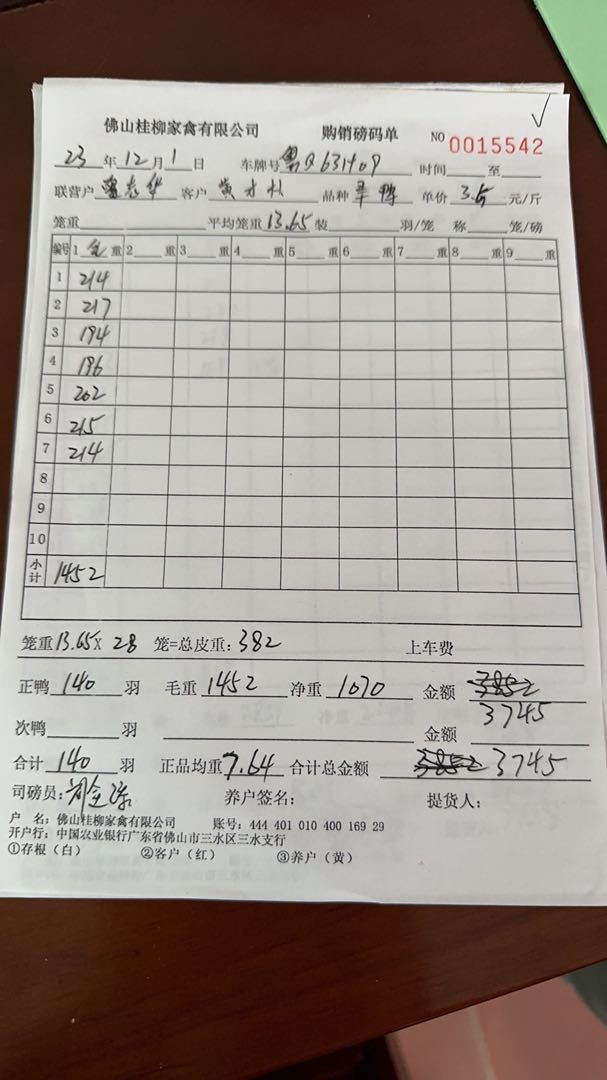 佛山桂柳家禽有限公司 购销磅码单 NO 0015542
23 年 12 月 1 日 车牌号 粤Q631409 时间 至
联营户 客户 黄才 品种 鸭 单价 3.5 元/斤
笼重 平均笼重 13.65 装 羽/笼 称 笼/磅
编号 1 重 2 重 3 重 4 重 5 重 6 重 7 重 8 重 9 重
1 214
2 217
3 194
4 196
5 202
6 215
7 214
8
9
10
小计 1452
笼重 13.65 X 28 笼=总皮重: 382 上车费
正鸭 140 羽 毛重 1452 净重 1070 金额 3852
3745
次鸭 羽 金额
合计 140 羽 正品均重 7.64 合计总金额 3852 3745
司磅员: 养户签名: 提货人:
户 名: 佛山桂柳家禽有限公司 账号: 444 401 010 400 169 29
开户行: 中国农业银行广东省佛山市三水区三水支行
①存根(白) ②客户(红) ③养户(黄)